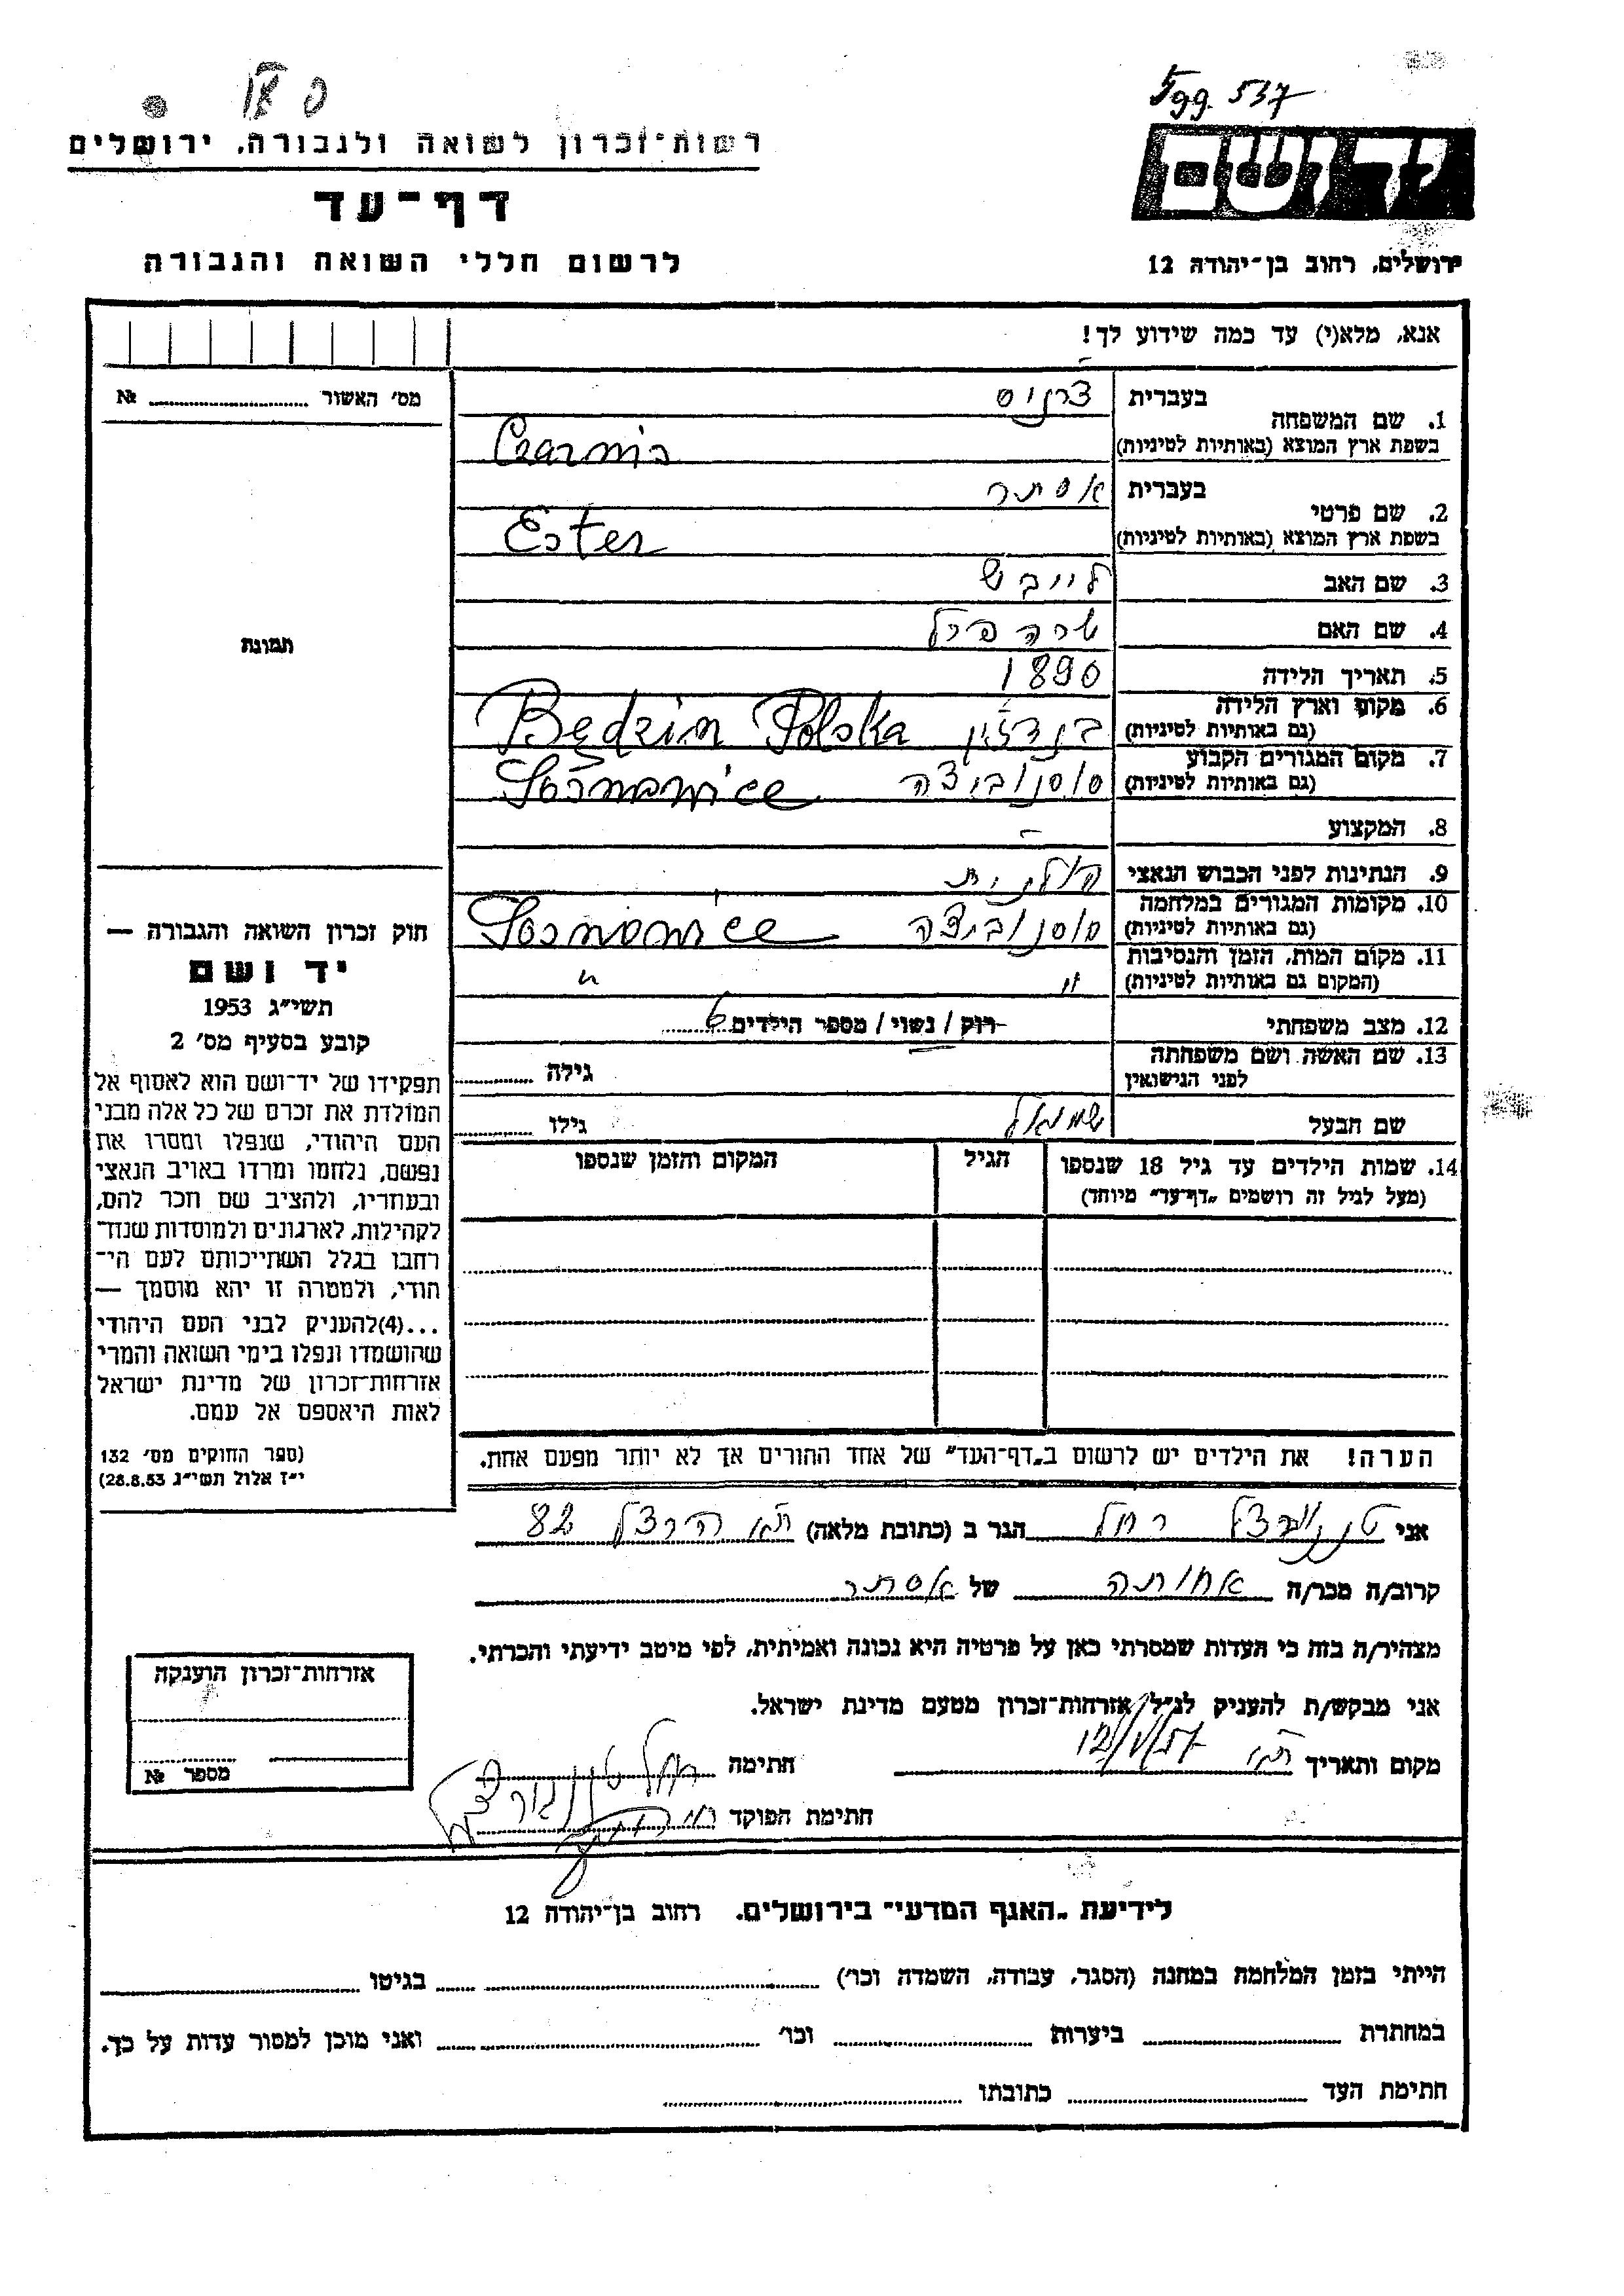 599. 537
רשות־זכרון לשואה ולגבורה, ירושלים
יד ושם
דף־עד
לרשום חללי השואה והגבורה
ירושלים, רחוב בן־יהודה 12
אנא, מלא(י) עד כמה שידוע לך!
מס׳ האשור №
1. שם המשפחה
בעברית
בשפת ארץ המוצא (באותיות לטיניות)
Czarnis
2. שם פרטי
בעברית אסתר
בשפת ארץ המוצא (באותיות לטיניות) Ester
3. שם האב לייבש
4. שם האם שרה פרל
5. תאריך הלידה 1890
6. מקום וארץ הלידה (גם באותיות לטיניות) בנדזין Będzin Polska
7. מקום המגורים הקבוע (גם באותיות לטיניות) סוסנוביצה Sosnowice
8. המקצוע -
9. הנתינות לפני הכבוש הנאצי פולנית
10. מקומות המגורים במלחמה (גם באותיות לטיניות) סוסנוביצה Sosnowice
11. מקום המות, הזמן והנסיבות (המקום גם באותיות לטיניות) " "
12. מצב משפחתי רוק / נשוי / מספר הילדים 6
13. שם האשה ושם משפחתה לפני הנישואין גילה
שם הבעל שמואל גילו
14. שמות הילדים עד גיל 18 שנספו
(מעל לגיל זה רושמים „דף־עד״ מיוחד)
הגיל
המקום והזמן שנספו
הערה! את הילדים יש לרשום ב„דף־העד״ של אחד ההורים אך לא יותר מפעם אחת.
תמונת
חוק זכרון השואה והגבורה —
יד ושם
תשי״ג 1953
קובע בסעיף מס׳ 2
תפקידו של יד־ושם הוא לאסוף אל
המולדת את זכרם של כל אלה מבני
העם היהודי, שנפלו ומסרו את
נפשם, נלחמו ומרדו באויב הנאצי
ובעוזריו, ולהציב שם וזכר להם,
לקהילות, לארגונים ולמוסדות שנח־
רבו בגלל השתייכותם לעם הי־
הודי, ולמטרה זו יהא מוסמך —
...(4)להעניק לבני העם היהודי
שהושמדו ונפלו בימי השואה והמרי
אזרחות־זכרון של מדינת ישראל
לאות היאספם אל עמם.
(ספר החוקים מס׳ 132
י״ז אלול תשי״ג 28.8.53)
אני רחל הגר ב (כתובת מלאה) ת"א הרצל 82
קרוב/ה מכר/ה אחותה של אסתר
מצהיר/ה בזה כי העדות שמסרתי כאן על פרטיה היא נכונה ואמיתית, לפי מיטב ידיעתי והכרתי.
אני מבקש/ת להעניק לנ״ל אזרחות־זכרון מטעם מדינת ישראל.
מקום ותאריך ת"א חתימה רחל
חתימת הפוקד
אזרחות־זכרון הוענקה
מספר №
לידיעת „האגף המדעי״ בירושלים, רחוב בן־יהודה 12
הייתי בזמן המלחמה במחנה (הסגר, עבודה, השמדה וכו׳) בגיטו
במחתרת ביערות וכו׳ ואני מוכן למסור עדות על כך.
חתימת העד כתובתו